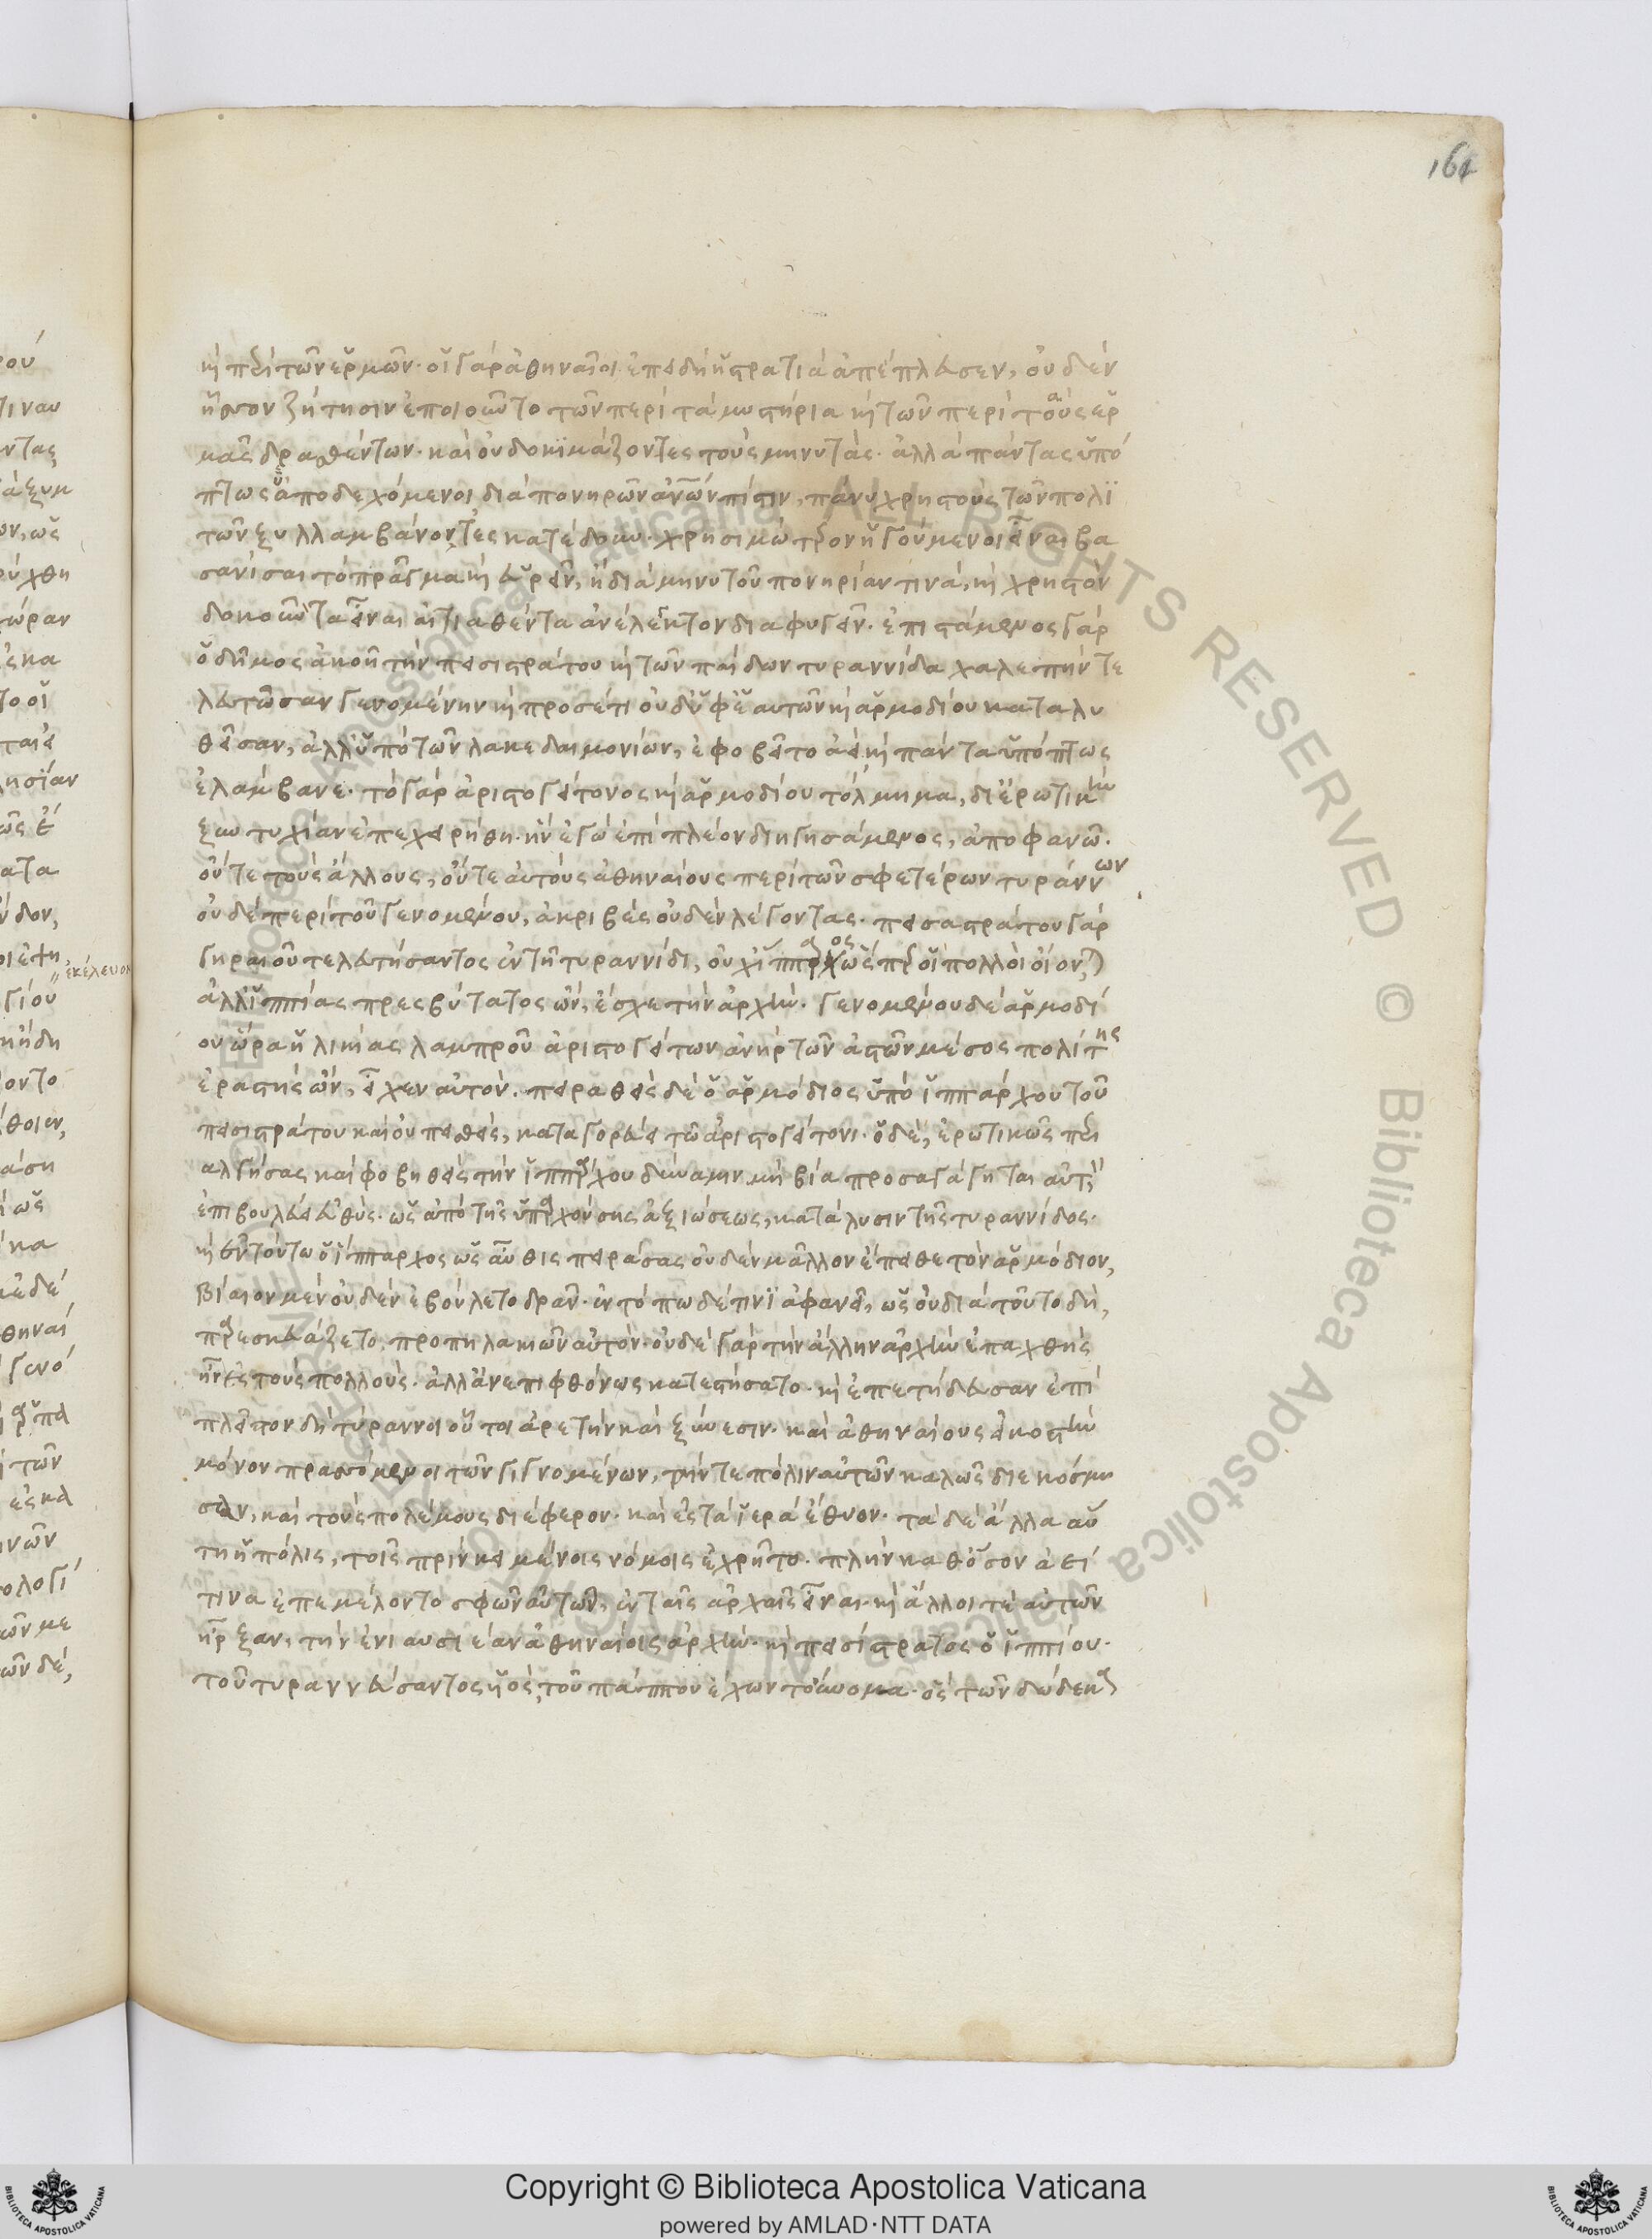 161
καὶ περὶ τῶν ἑρμῶν. οἱ γὰρ ἀθηναῖοι ἐπειδὴ ἡ στρατιὰ ἀπέπλευσεν, οὐδὲν
ἧσσον ζήτησιν ἐποιοῦντο τῶν περὶ τὰ μυστήρια καὶ τῶν περὶ τοὺς ἑρ
μᾶς δρασθέντων. καὶ οὐ δοκιμάζοντες τοὺς μηνυτὰς. ἀλλὰ πάντας ὑπό
πτως ἀποδεχόμενοι, διὰ πονηρῶν ἀνῶν πίστιν, πάνυ χρηστοὺς τῶν πολι
τῶν ξυλλαμβάνοντες κατέδουν. χρησιμώτερον ἡγούμενοι εἶναι βα
σανίσαι τὸ πρᾶγμα καὶ εὑρεῖν, ἢ διὰ μηνυτοῦ πονηρίαν τινὰ, καὶ χρηστὸν
δοκοῦντα εἶναι αἰτιαθέντα ἀνέλεγκτον διαφυγεῖν. ἐπιστάμενος γὰρ
ὁ δῆμος ἀκοῆ τὴν πεισιστράτου καὶ τῶν παίδων τυραννίδα χαλεπὴν τε
λευτῶσαν γενομένην καὶ προσέτι οὐδ' ὑφ' ἑαυτῶν καὶ ἁρμοδίου καταλυ
θεῖσαν, ἀλλ' ὑπὸ τῶν λακεδαιμονίων, ἐφοβεῖτο ἀεὶ καὶ πάντα ὑπόπτως
ἐλάμβανε. τὸ γὰρ ἀριστογείτονος καὶ ἁρμοδίου τόλμημα, δι' ἐρωτικὴν
ξυντυχίαν ἐπεχειρήθη. ἣν ἐγὼ ἐπὶ πλέον διηγησάμενος, ἀποφανῶ.
οὔτε τοὺς ἄλλους, οὔτε αὐτοὺς ἀθηναίους περὶ τῶν σφετέρων τυράννων
οὐδὲ περὶ τοῦ γενομένου, ἀκριβὲς οὐδὲν λέγοντας. πεισιστράτου γὰρ
γηραιοῦ τελευτήσαντος ἐν τῆ τυραννίδι, οὐχ ἵππαρχος ὥσπερ οἱ πολλοὶ οἴονται
ἀλλ' ἱππίας πρεσβύτατος ὢν, ἔσχε τὴν ἀρχὴν. γενομένου δὲ ἁρμοδί
ου ὥρα ἡλικίας λαμπροῦ ἀριστογείτων ἀνὴρ τῶν ἀστῶν μέσος πολίτης
ἐραστὴς ὢν, εἶχεν αὐτόν. πειραθεὶς δὲ ὁ ἁρμόδιος ὑπὸ ἱππάρχου τοῦ
πεισιστράτου καὶ οὐ πεισθεὶς, καταγορεύει τῶ ἀριστογείτονι. ὁ δὲ, ἐρωτικῶς περι
αλγήσας καὶ φοβηθεὶς τὴν ἱππάρχου δύναμιν μὴ βία προσαγάγηται αὐτὸν
ἐπιβουλεύει εὐθὺς. ὡς ἀπὸ τῆς ὑπαρχούσης ἀξιώσεως, κατάλυσιν τῆς τυραννίδος.
καὶ ἐν τούτω ὁ ἵππαρχος ὡς αὖθις πειράσας οὐδὲν μᾶλλον ἔπειθε τὸν ἁρμόδιον,
βίαιον μὲν οὐδὲν ἐβούλετο δρᾶν. ἐν τόπω δέ τινι ἀφανεῖ, ὡς οὐ διὰ τοῦτο δὴ,
παρεσκευάζετο, προπηλακιῶν αὐτὸν. οὐδὲ γὰρ τὴν ἄλλην ἀρχὴν ἐπαχθὴς
ἦν ἐς τοὺς πολλοὺς. ἀλλ' ἀνεπιφθόνως κατεστήσατο. καὶ ἐπετήδευσαν ἐπὶ
πλεῖστον δὴ τύραννοι οὗτοι ἀρετὴν καὶ ξύνεσιν. καὶ ἀθηναίους εἰκοστὴν
μόνον πρασσόμενοι τῶν γιγνομένων, τήν τε πόλιν αὐτῶν καλῶς διεκόσμη
σαν, καὶ τοὺς πολέμους διέφερον. καὶ ἐς τὰ ἱερὰ ἔθυον. τὰ δὲ ἄλλα αὐ
τὴ ἡ πόλις, τοῖς πρὶν κειμένοις νόμοις ἐχρῆτο. πλὴν καθ' ὅσον ἀεί
τινα ἐπεμέλοντο σφῶν αὐτῶν, ἐν ταῖς ἀρχαῖς εἶναι. καὶ ἄλλοι τὲ αὐτῶν
ἦρξαν, τὴν ἐνιαυσιείαν ἀθηναίοις ἀρχὴν. καὶ πεισίστρατος ὁ ἱππίου.
τοῦ τυραννεύσαντος ὑὸς, τοῦ πάππου ἔχων τοὔνομα. ὃς τῶν δώδεκα
Copyright © Biblioteca Apostolica Vaticana
powered by AMLAD·NTT DATA